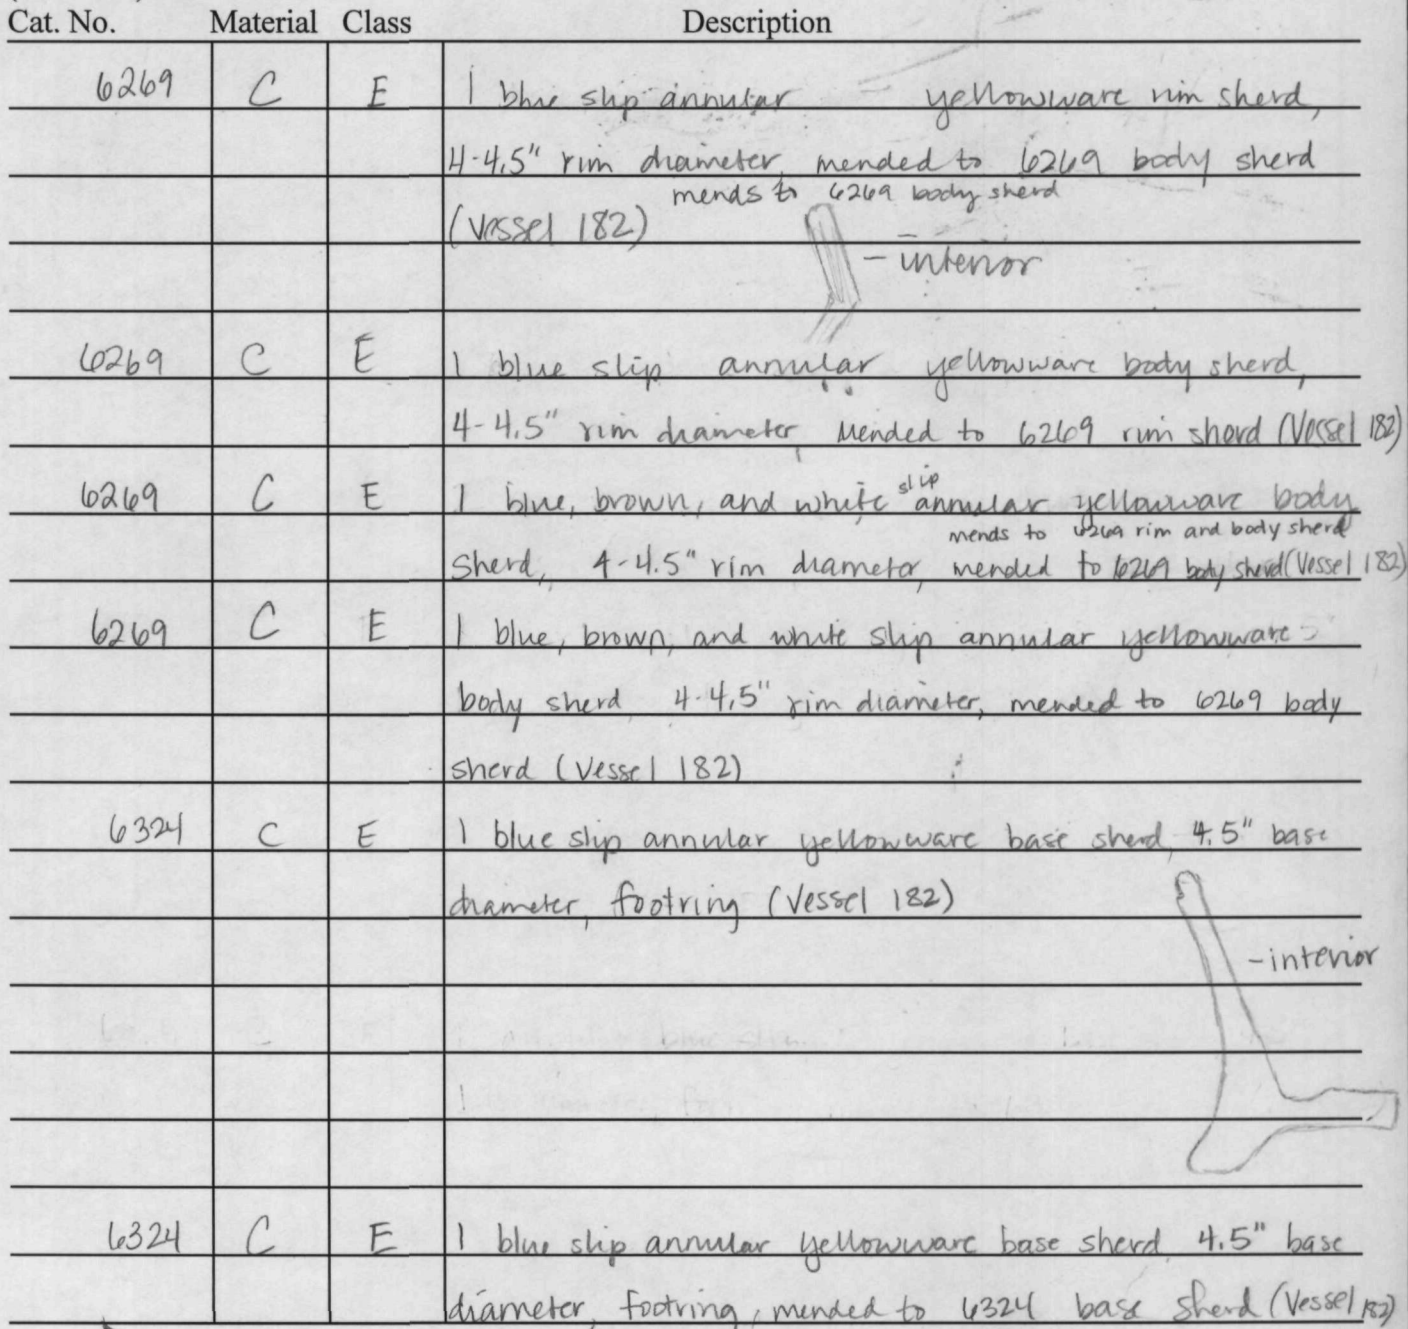 Cat. No. Material Class Description
6269 C E 1 blue slip annular yellowware rim sherd,
4-4.5" rim diameter, mended to 6269 body sherd
mends to 6269 body sherd
(Vessel 182)
- interior
6269 C E 1 blue slip annular yellowware body sherd,
4-4.5" rim diameter, mended to 6269 rim sherd (Vessel 182)
slip
6269 C E 1 blue, brown, and white annular yellowware body
mends to 6269 rim and body sherd
sherd, 4-4.5" rim diameter, mended to 6269 body sherd (Vessel 182)
6269 C E 1 blue, brown, and white slip annular yellowware
body sherd 4-4.5" rim diameter, mended to 6269 body
sherd (Vessel 182)
6324 C E 1 blue slip annular yellowware base sherd, 4.5" base
diameter, footring (Vessel 182)
- interior
blue slip
6324 C E 1 blue slip annular yellowware base sherd, 4.5" base
diameter, footring, mended to 6324 base sherd (Vessel 182)